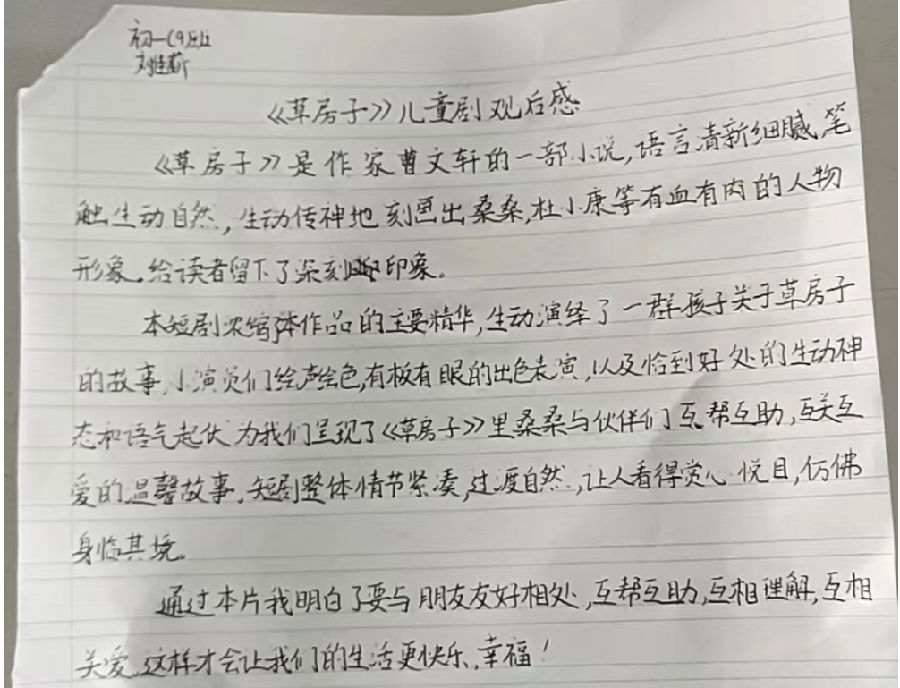 初一(9)班
刘佳蕲
《草房子》儿童剧观后感
《草房子》是作家曹文轩的一部小说,语言清新细腻,笔
触生动自然,生动传神地刻画出桑桑,杜小康等有血有肉的人物
形象。给读者留下了深刻印象。
本短剧浓缩作品的主要精华,生动演绎了一群孩子关于草房子
的故事,小演员们绘声绘色,有板有眼的出色表演,以及恰到好处的生动神
态和语气起伏为我们呈现了《草房子》里桑桑与伙伴们互帮互助,互关互
爱的温馨故事,短剧整体情节紧凑,过渡自然,让人看得赏心悦目,仿佛
身临其境。
通过本片我明白了要与朋友友好相处,互帮互助,互相理解,互相
关爱,这样才会让我们的生活更快乐,幸福!